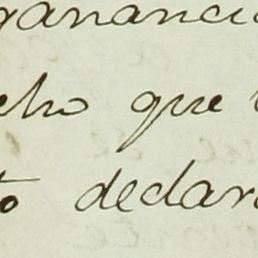 gananci
cho que
to declar